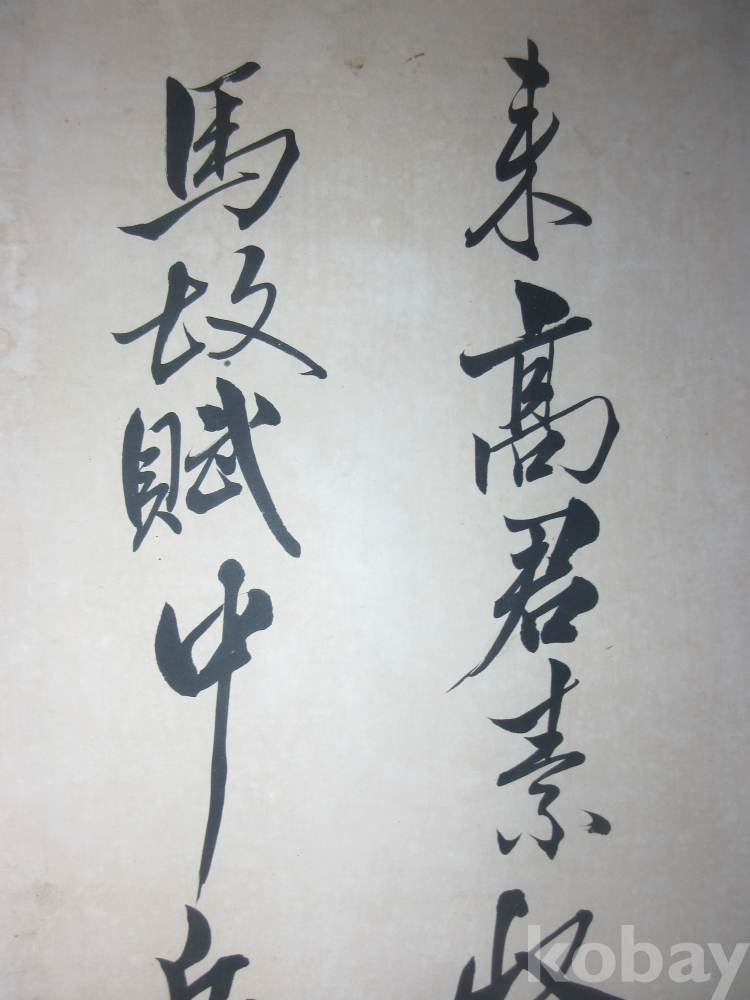 来高君素
馬故賦中
kobay